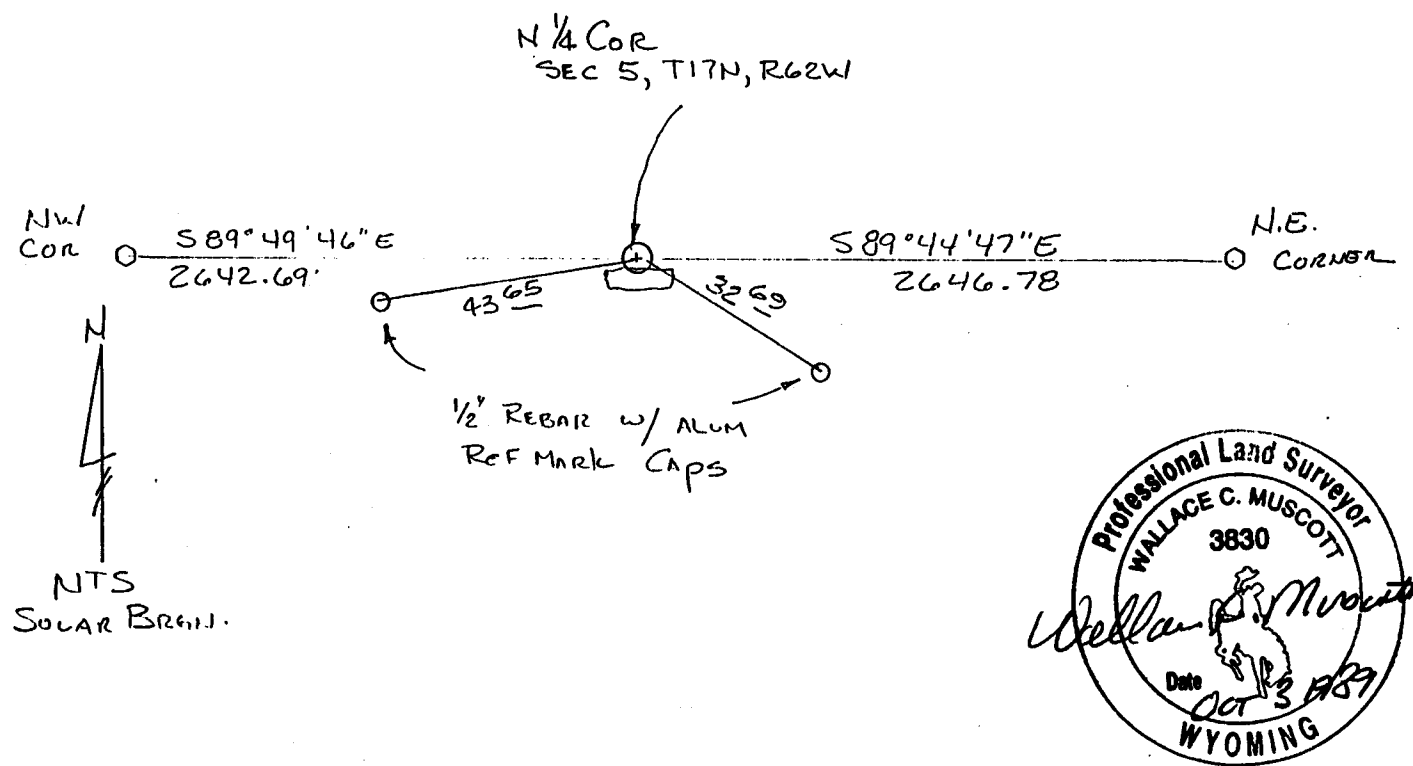 N 1/4 COR
SEC 5, T17N, R62W
NW
COR
S 89° 49' 46" E
2642.69'
S 89° 44' 47" E
2646.78
N.E.
CORNER
43 65
32 69
N
1/2" REBAR W/ ALUM
REF MARK CAPS
NTS
SOLAR
Professional Land Surveyor
WALLACE C. MUSCOTT
3830
Date
OCT 3 1989
WYOMING